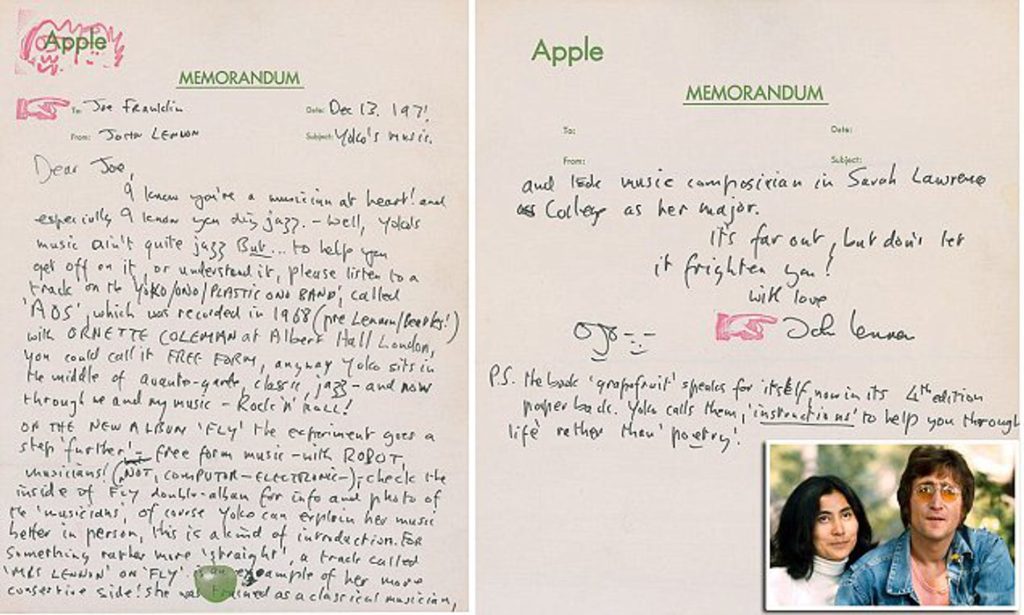 Apple
MEMORANDUM
To: Joe Franklin
Date: Dec 13. 197!
From: John Lennon
Subject: Yoko's music.
Dear Joe,
I know you're a musician at heart! and
especially I know you dig jazz. - Well, Yoko's
music ain't quite jazz But... to help you
get off on it, or understand it, please listen to a
track on the 'YOKO/ONO/PLASTIC ONO BAND', called
'AOS', which was recorded in 1968 (pre Lennon/Beatles!)
with ORNETTE COLEMAN at Albert Hall London,
you could call it FREE FORM, anyway Yoko sits in
the middle of avante-garde, classic, jazz - and now
through me and my music - Rock 'n' Roll!
ON THE NEW ALBUM 'FLY' the experiment goes a
step 'further' - free form music - with ROBOT,
musicians! (NOT, COMPUTOR-ELECTRONIC-), check the
inside of Fly double-album for info and photo of
the 'musicians', of course Yoko can explain her music
better in person, this is a kind of introduction. FOR
something rather more 'straight', a track called
'MRS LENNON' on 'FLY' is an example of her more
conservative side! she was trained as a classical musician,
Apple
MEMORANDUM
To:
Date:
From:
Subject:
and music composition in Sarah Lawrence
College as her major.
It's far out, but don't let
it frighten you!
with love
John Lennon
P.S. the book 'grapefruit' speaks for itself, now in its 4th edition
paperback. Yoko calls them, 'instructions' to help you through
life rather than 'poetry'.